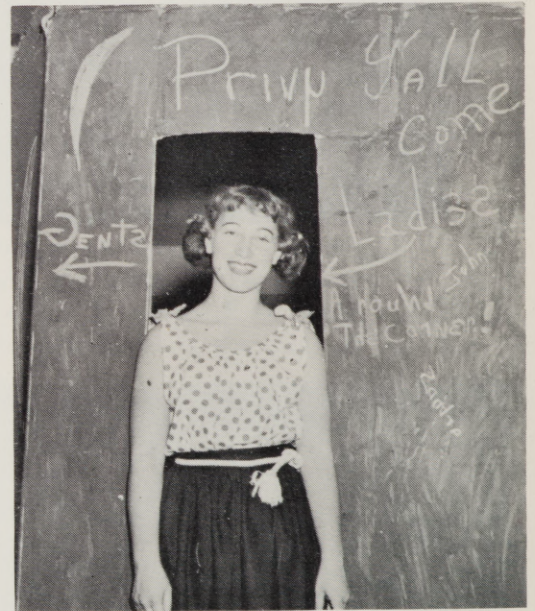 Privy Yall
Come
Gents
Ladies
John
Around
The Corner!